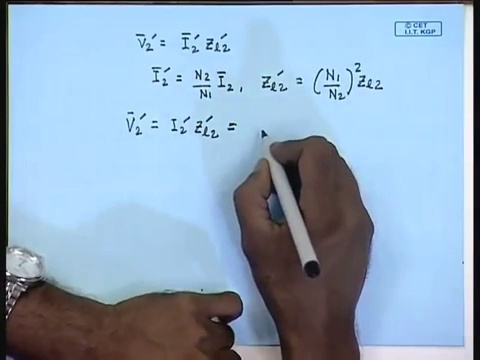 © CET
I.I.T. KGP
V̄₂′ = Ī₂′ Z_l2′
Ī₂′ = N₂/N₁ Ī₂, Z_l2′ = (N₁/N₂)² Z_l2
V̄₂′ = I₂′ Z_l2′ =